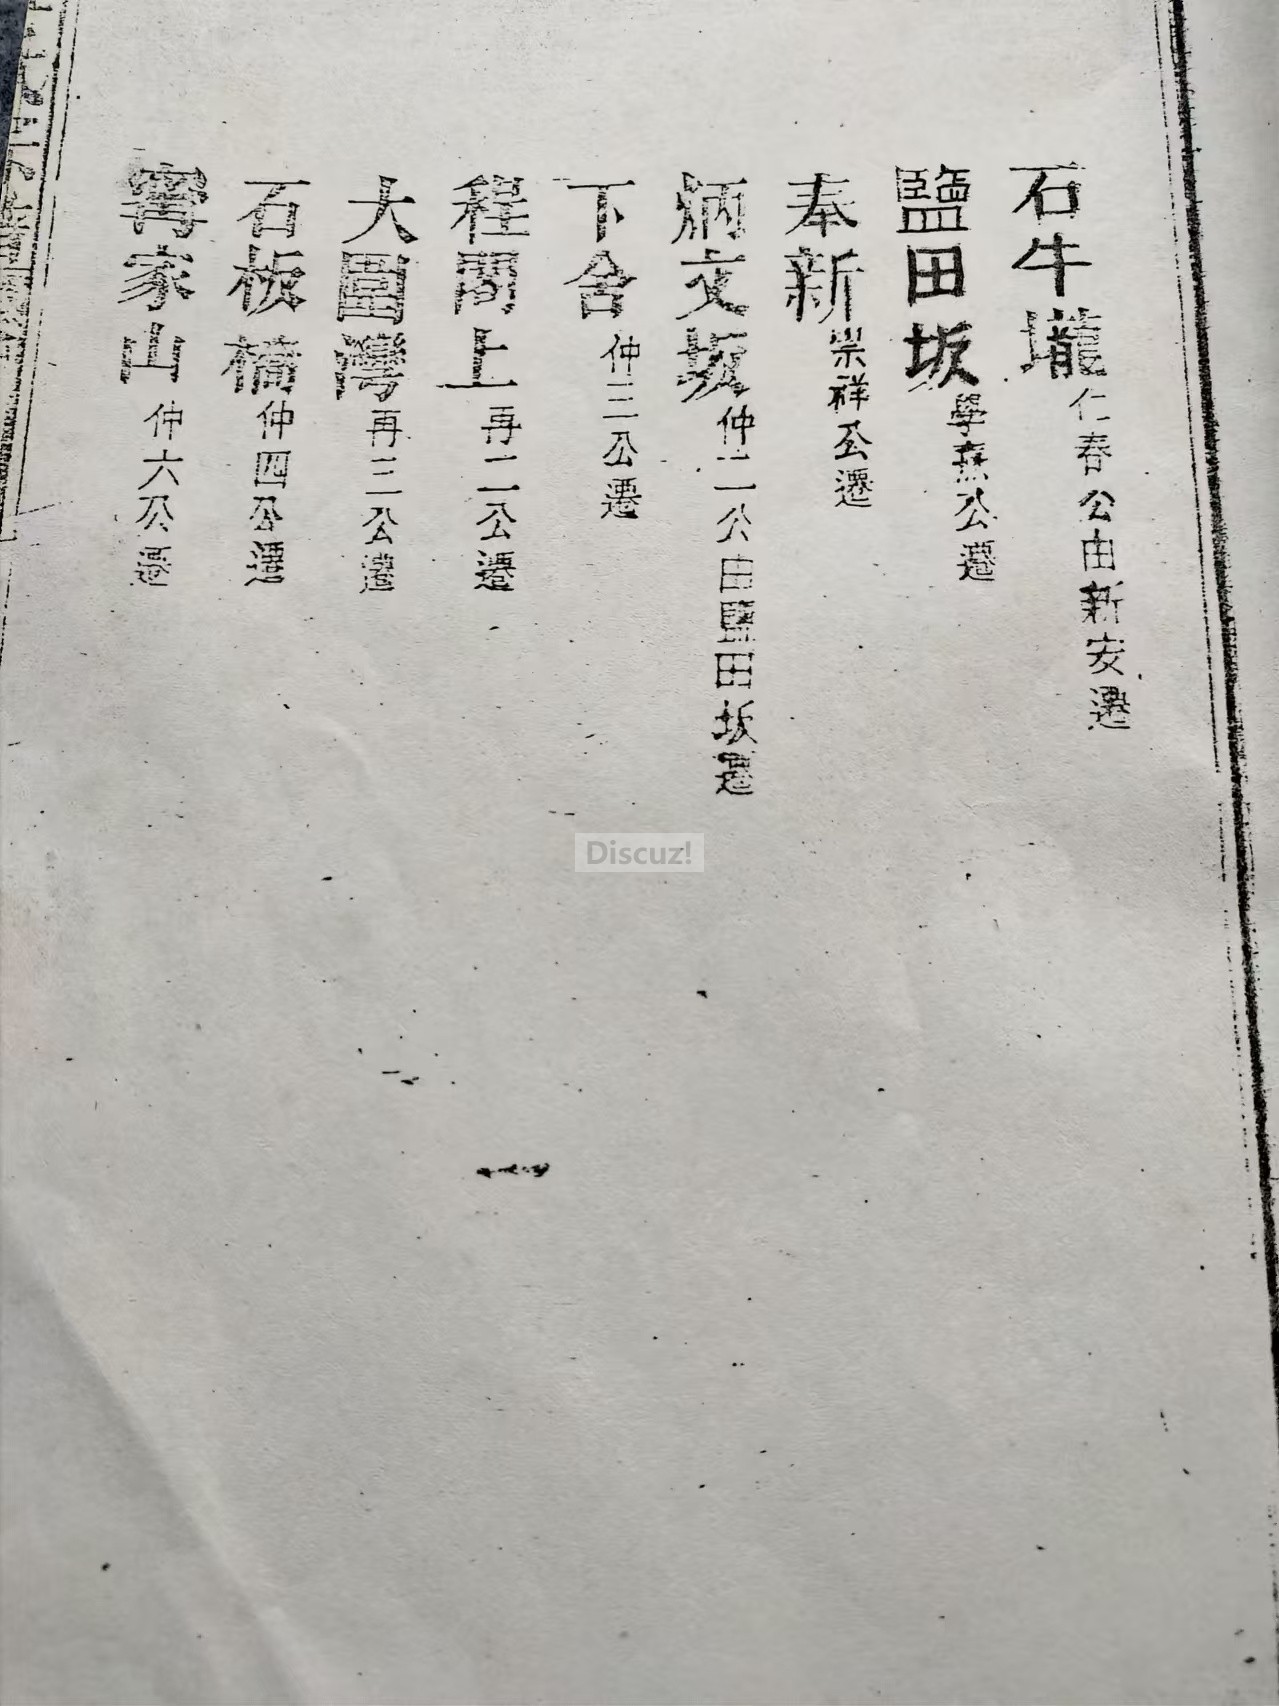 石牛壠 仁春公由新安遷
鹽田坂 學燕公遷
奉新 崇祥公遷
炳文坂 仲二公由鹽田坂遷
下舍 仲三公遷
程閣上 再二公遷
大圍灣 再三公遷
石板橋 仲四公遷
甯家山 仲六公遷
Discuz!